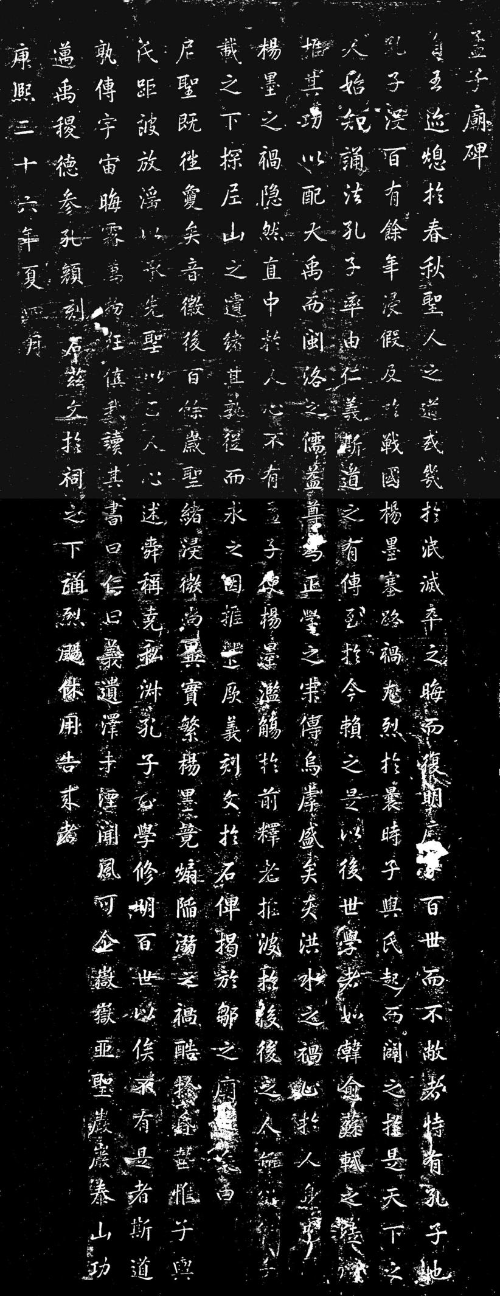 孟子廟碑
自王迹熄於春秋聖人之道或幾於泯滅卒之晦而復明百世而不敝者特有孔子也
孔子沒百有餘年浸假及於戰國楊墨塞路禍尤烈於曩時子輿氏起而闢之於是天下之
人始知誦法孔子率由仁義斯道之有傳至於今賴之是以後世學者如韓愈蘇軾之徒
推其功以配大禹而閩洛之儒蓋尊為正學之宗傳烏虖盛矣夫洪水之禍止於人身
楊墨之禍隱然直中於人心不有孟子使楊墨濫觴於前釋老推波於後後之人
載之下探尼山之遺緒其孰從而求之因推厥義刻文於石俾揭於鄒之廟曰
尼聖既徂夐矣音徽後百餘歲聖緒浸微尚異實繁楊墨竟煽陷溺之禍酷惟子輿
氏距詖放淫以承先聖以正人心述舜稱堯私淑孔子正學修明百世以俟有是者斯道
孰傳宇宙晦霧萬物狂讀其書曰仁曰義遺澤湮聞風可企嶽嶽亞聖巖巖泰山功
邁禹稷德參孔顏刻石茲文於祠之下誦烈颺休用告來者
康熙二十六年夏四月